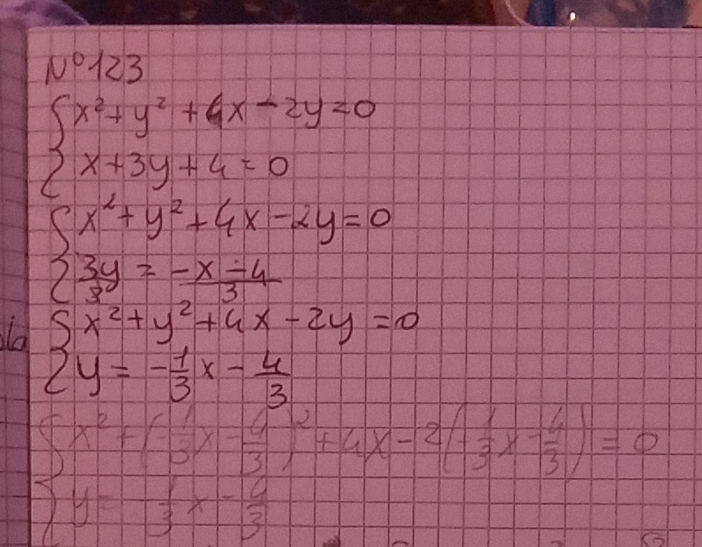 N°123
{ x² + y² + 4x - 2y = 0
x + 3y + 4 = 0
{ x² + y² + 4x - 2y = 0
3y/3 = (-x - 4)/3
{ x² + y² + 4x - 2y = 0
y = -1/3 x - 4/3
{ x² + (-1/3 x - 4/3)² + 4x - 2(-1/3 x - 4/3) = 0
y = -1/3 x - 4/3